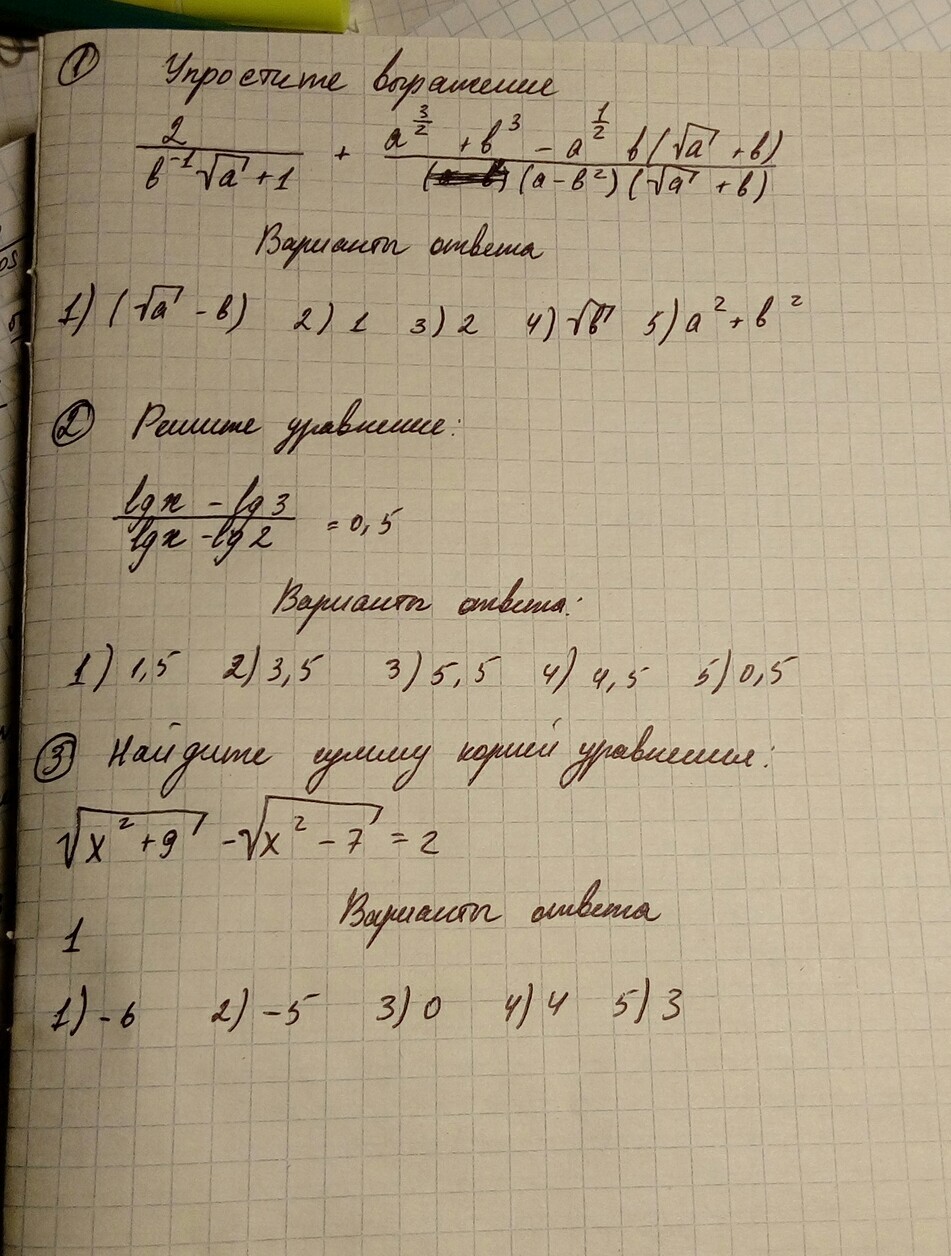 ① Упростите выражение
2 / (b^-1 √a + 1) + (a^(3/2) + b^3 - a^(1/2) b (√a + b)) / ((a - b^2) (√a + b))
Варианты ответа
1) (√a - b) 2) 1 3) 2 4) √b 5) a^2 + b^2
② Решите уравнение:
(lg x - lg 3) / (lg x - lg 2) = 0,5
Варианты ответа:
1) 1,5 2) 3,5 3) 5,5 4) 4,5 5) 0,5
③ Найдите сумму корней уравнения:
√(x^2 + 9) - √(x^2 - 7) = 2
Варианты ответа
1
1) -6 2) -5 3) 0 4) 4 5) 3